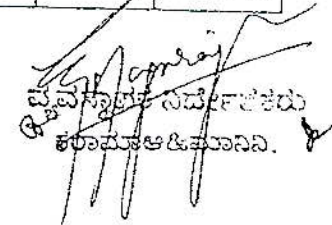 ವ್ಯವಸ್ಥಾಪಕ ನಿರ್ದೇಶಕರು
ಕರಾಮಾಆ&ಮಾನಿನಿ.